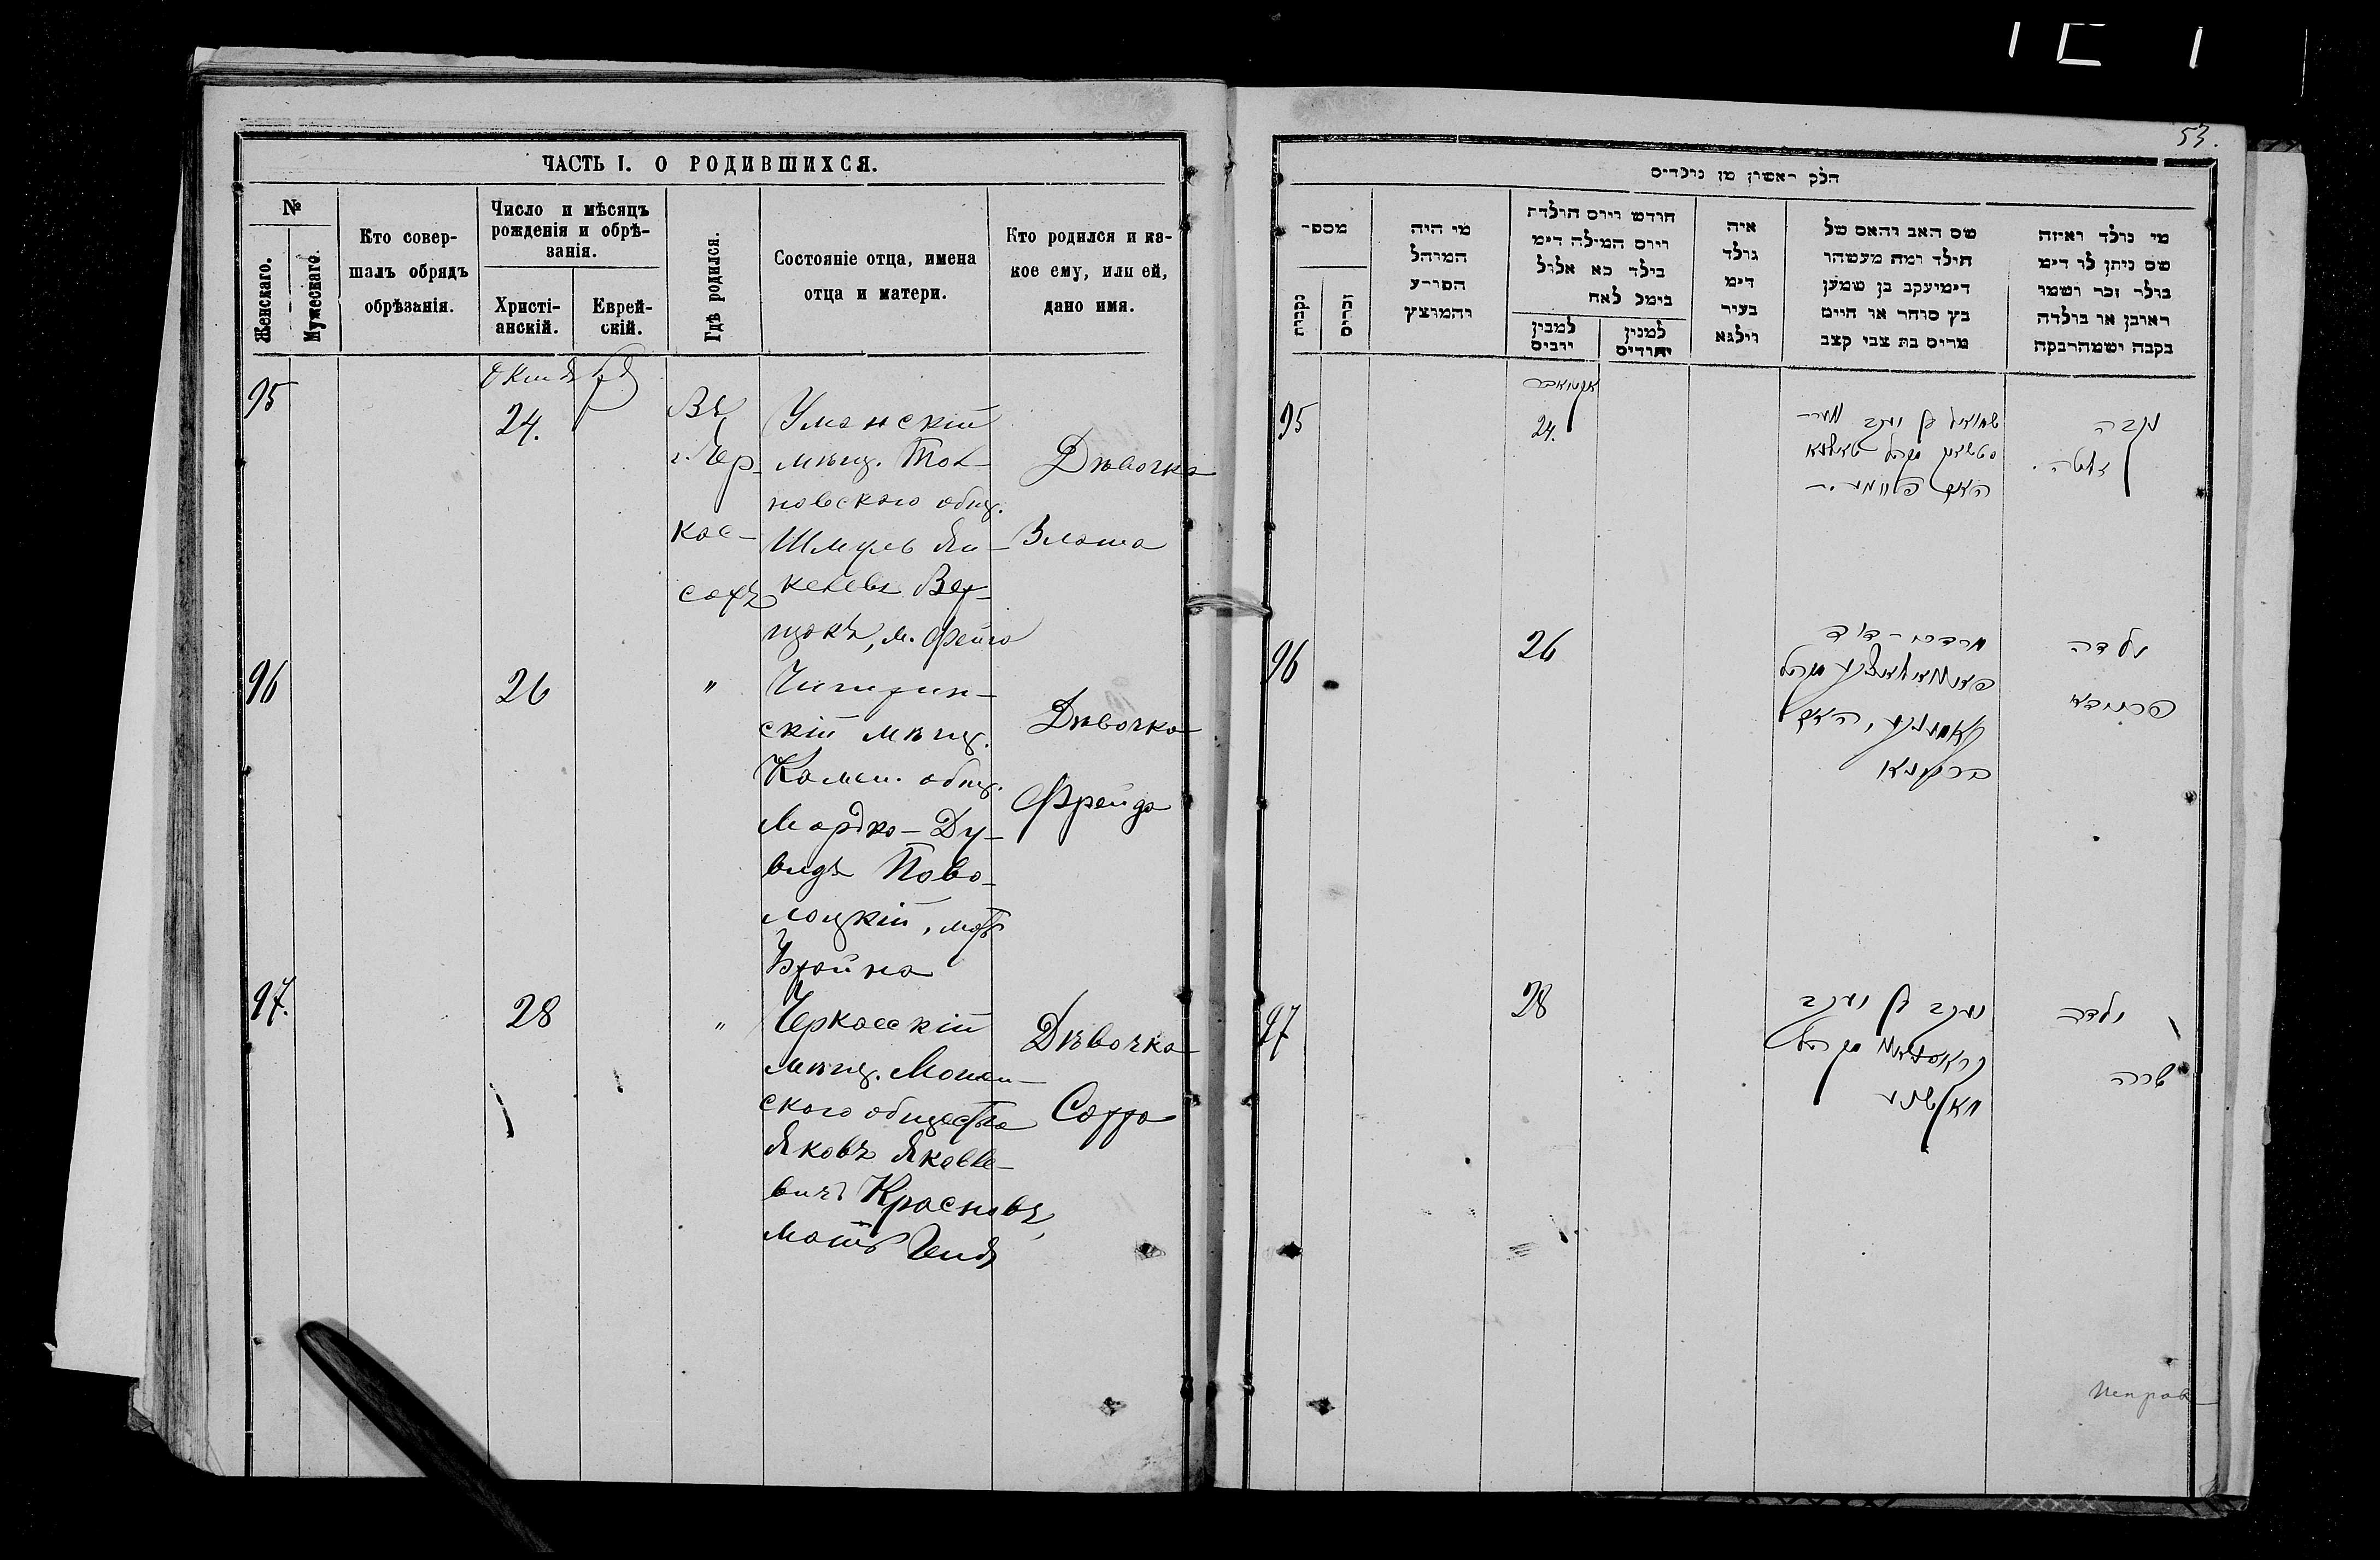 53.
ЧАСТЬ I. О РОДИВШИХСЯ.
№
Женскаго.
Мужескаго.
Кто совер-
шалъ обрядъ
обрѣзанія.
Число и мѣсяцъ
рожденія и обрѣ-
занія.
Христі-
анскій.
Еврей-
скій.
Гдѣ родился.
Состояніе отца, имена
отца и матери.
Кто родился и ка-
кое ему, или ей,
дано имя.
Октября
95
24.
Въ
г. Чер-
кас-
сахъ
Уманскій
мѣщ. Таль-
новскаго общ.
Шмуль Ян-
келевъ Вер-
щокъ, м. Фейга
Дѣвочка
Злата
96
26
"
Чигирин-
скій мѣщ.
Камен. общ.
Мордко-Ду-
видъ Пово-
лоцкій, мать
Брайна
Дѣвочка
Фрейда
97.
28
"
Черкасскій
мѣщ. Мошен-
скаго общества
Яковъ Яковле-
вичъ Красновъ,
мать
Дѣвочка
Сарра
חלק ראשון מן נולדים
מספר
נקבות
זכרים
מי היה
המוהל
הפורע
והמוצץ
חודש ויום תולדת
ויום המילה דימ
בילד כא אלול
בימל לאח
למנין
יונים
למנין
יהודים
איה
נולד
דימ
בעיר
וילנא
שם האב והאם של
הילד ומה מעשהו
דימיעקב בן שמען
כץ סוחר או חייט
מרים בת צבי קצב
מי נולד ואיזה
שם ניתן לו דימ
בולד זכר ושמו
ראובן או בולדה
נקבה ישמהרבקה
אקטאבר
95
24.
שמואל בן יעקב
נקבה
זלאטה.
96
26
מרדכי-דוד
ילדה
פריידא
97
28
יעקב בן יעקב
ילדה
שרה